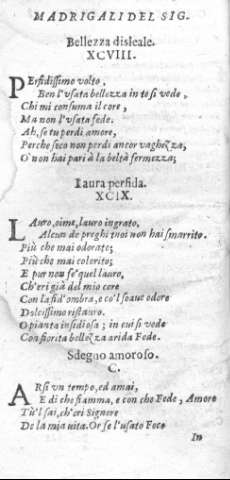 MADRIGALI DEL SIG.
Bellezza disleale.
XCVIII.
PErfidissimo volto,
Ben l'vsata bellezza in te si vede,
Chi mi consuma il core,
Ma non l'vsata fede.
Ah, se tu perdi amore,
Perche seco non perdi ancor vaghezza,
O' non hai pari à la beltà fermezza;
Laura perfida.
XCIX.
LAuro, oime, lauro ingrato,
Alcun de preghi tuoi non hai smarrito.
Più che mai odorato;
Più che mai colorito;
E pur non se' quel lauro,
Ch'eri già del mio core
Con la fid'ombra, e co'l soaue odore
Dolcissimo ristauro.
O pianta insidiosa; in cui si vede
Con fiorita bellezza arida Fede.
Sdegno amoroso.
C.
ARsi vn tempo, ed amai,
E di che fiamma, e con che Fede, Amore
Tù'l sai, ch'eri Signore
De la mia uita. Or se l'usato Foco
In